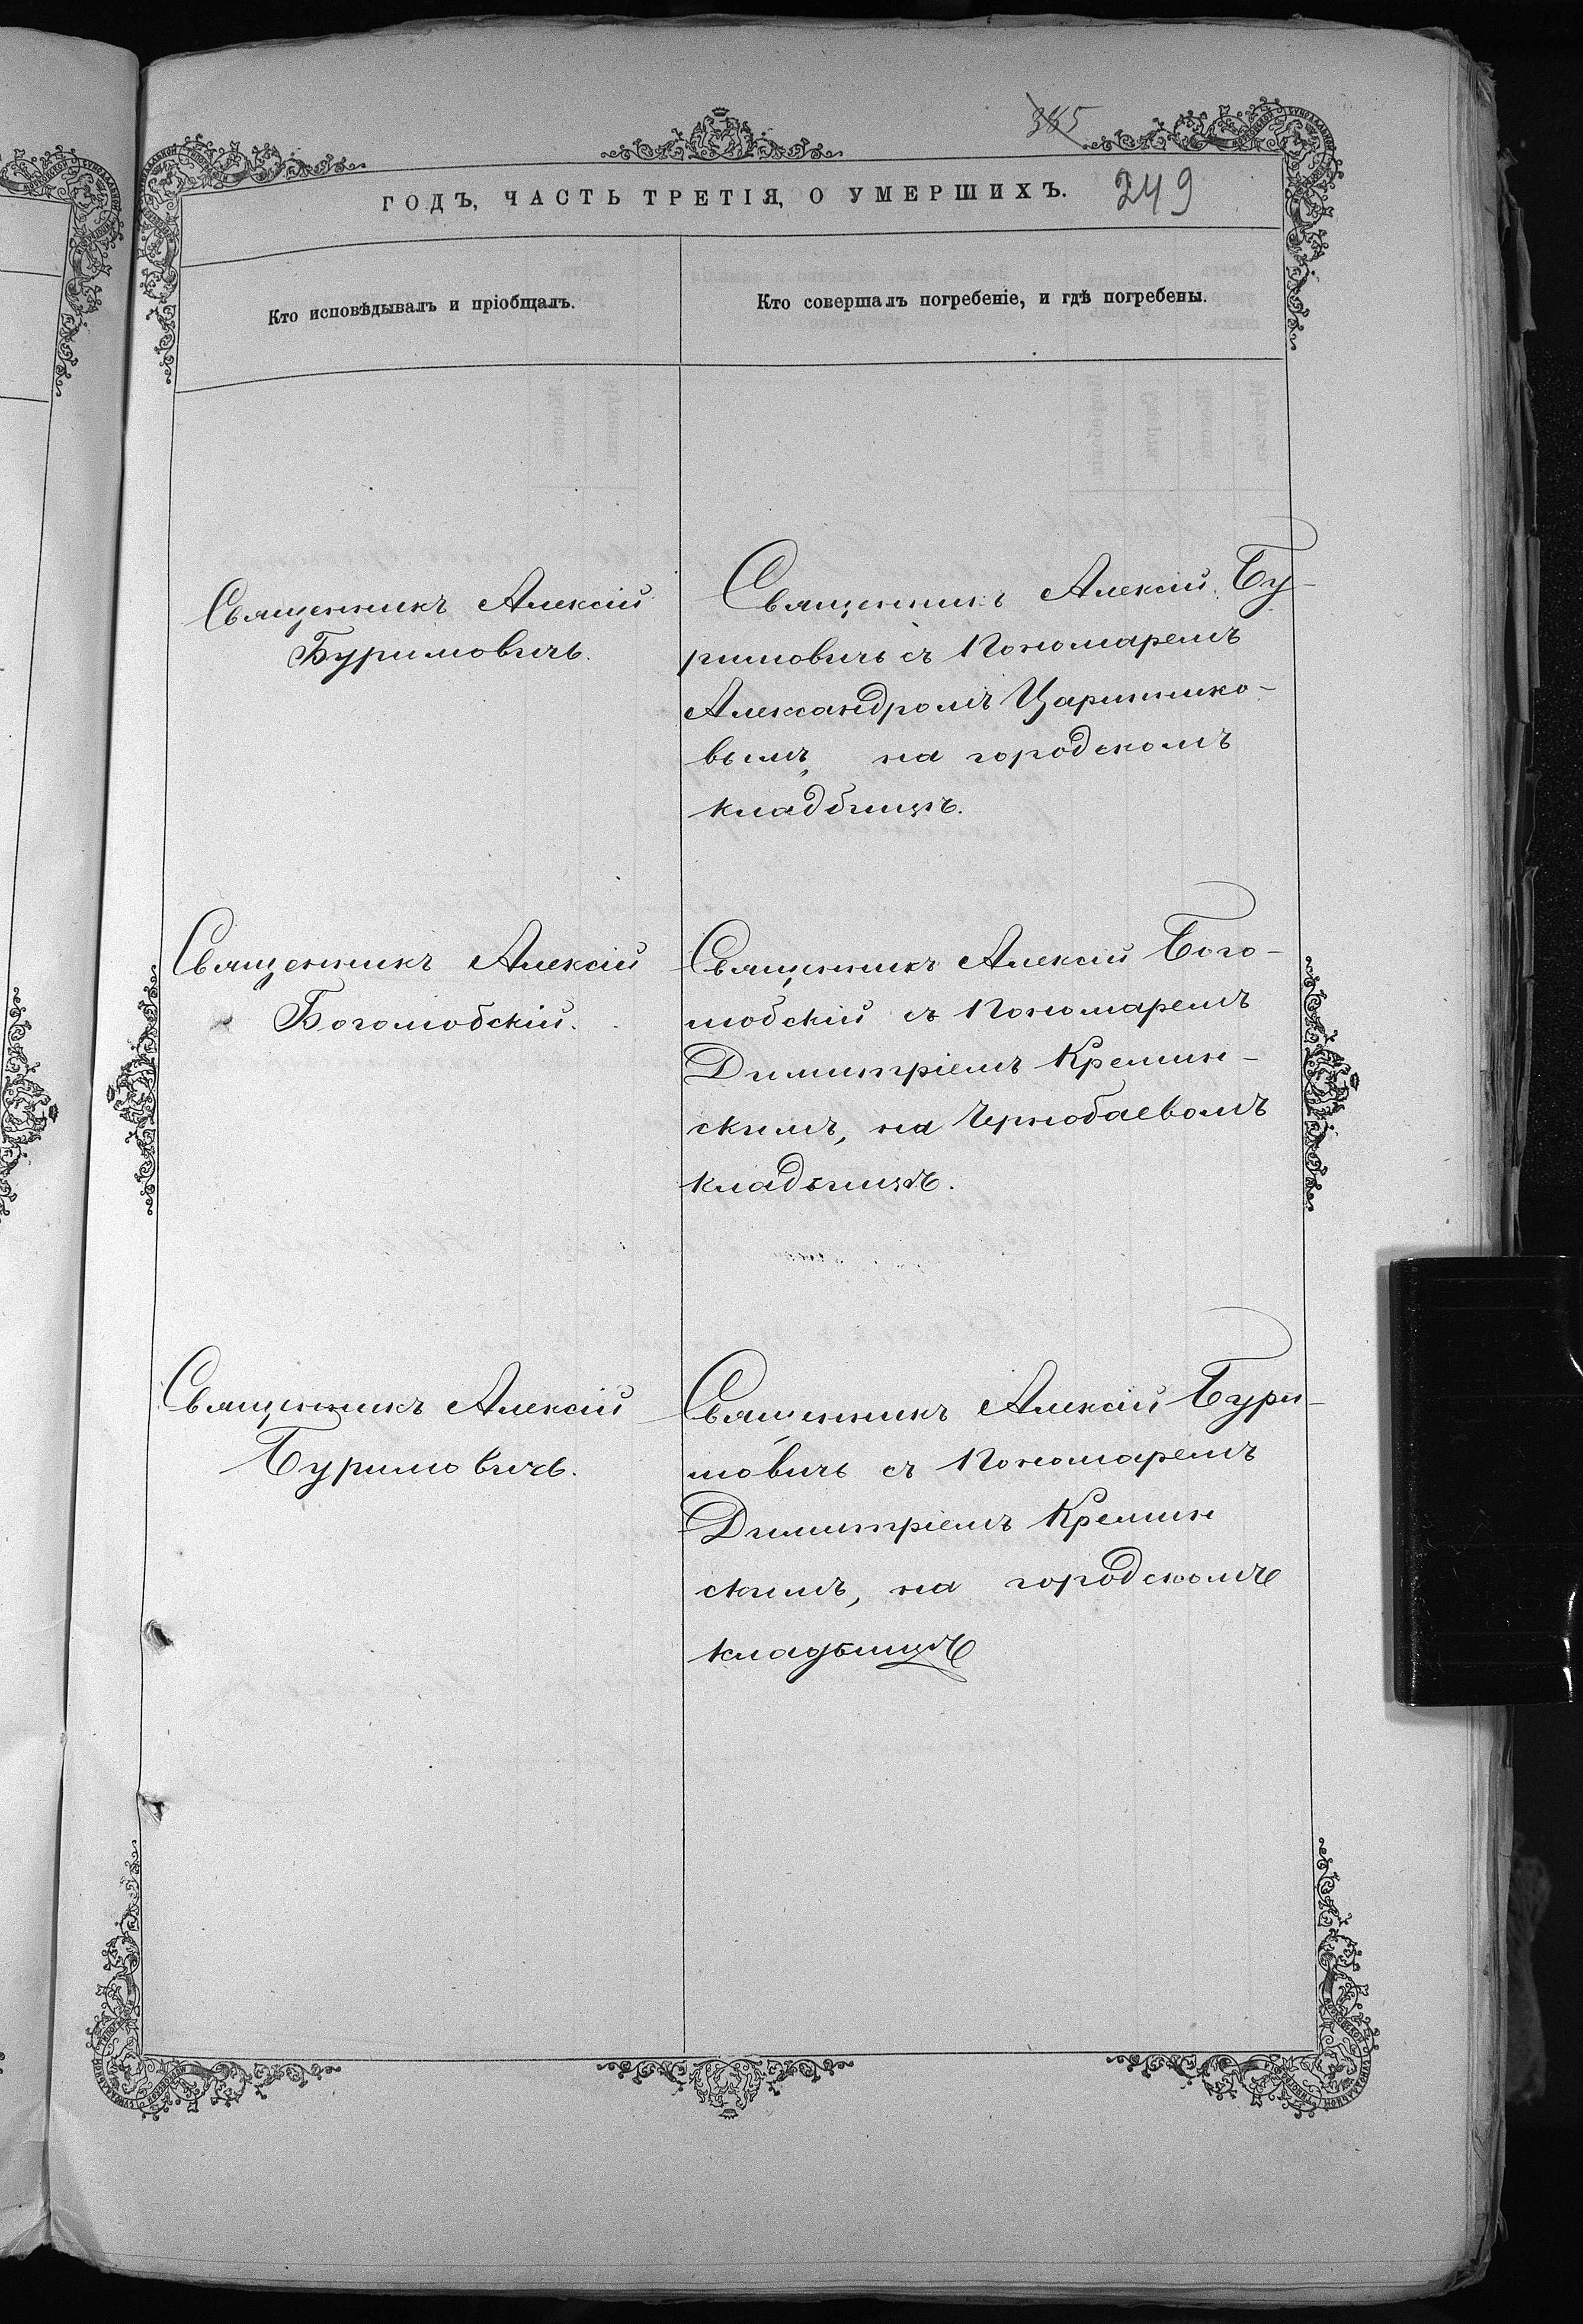 385
ГОДЪ, ЧАСТЬ ТРЕТІЯ, О УМЕРШИХЪ.
249
Кто исповѣдывалъ и пріобщалъ.
Кто совершалъ погребеніе, и гдѣ погребены.
Священникъ Алексій
Буримовичь.
Священникъ Алексій Бу-
римовичь съ Пономаремъ
Александромъ Царинико-
вымъ, на городскомъ
кладбищѣ.
Священникъ Алексій
Боголюбскій.
Священникъ Алексій Бого-
любскій съ Пономаремъ
Димитріемъ Кремин-
скимъ, на Чернобаевомъ
кладбищѣ.
Священникъ Алексій
Буримовичь.
Священникъ Алексій Бури-
мовичь съ Пономаремъ
Димитріемъ Кремин
скимъ, на городскомъ
кладбищѣ